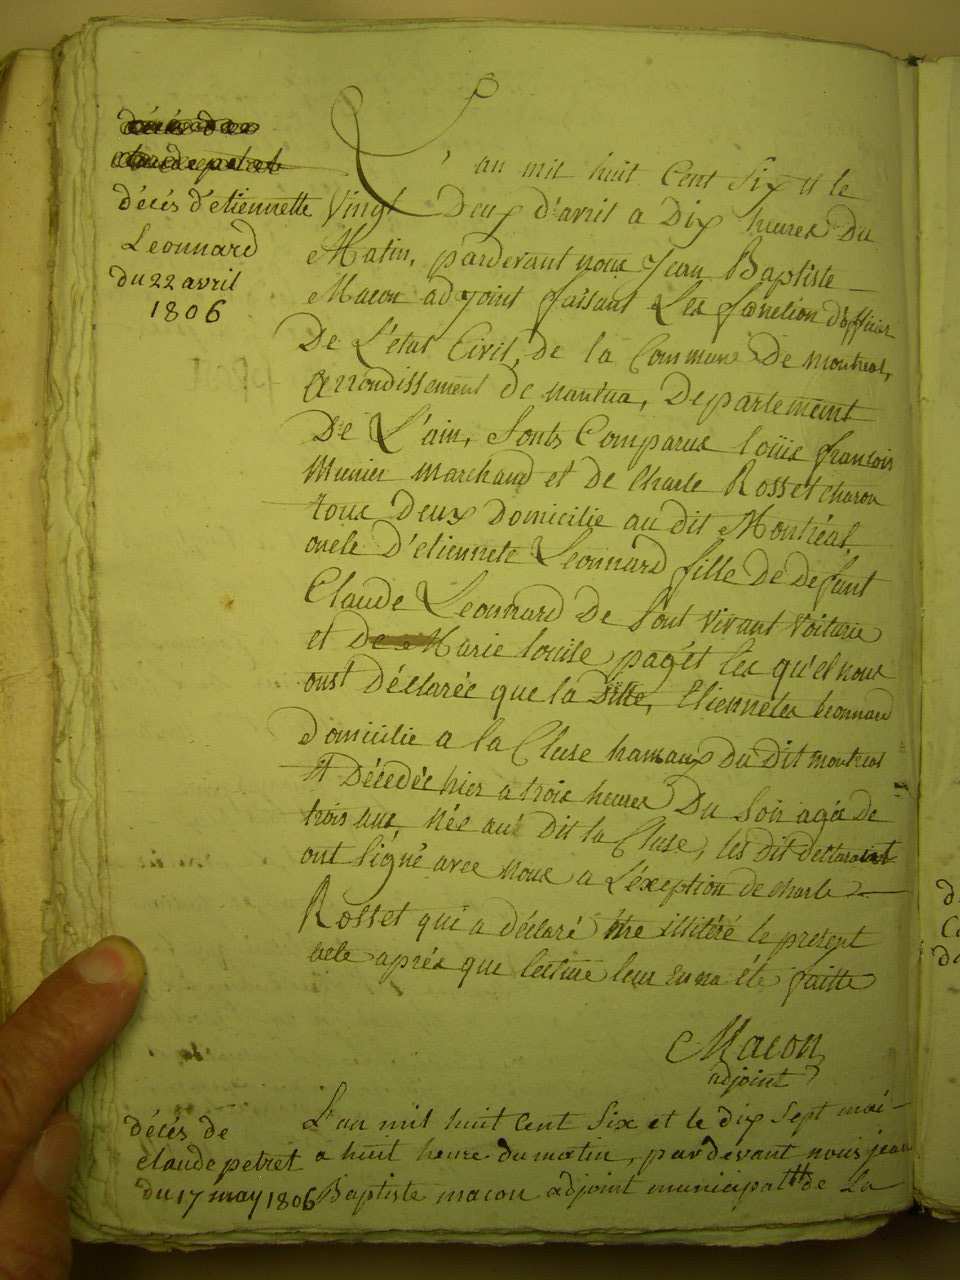 décés d'etiennette
Leonnard
du 22 avril
1806
L'an mil huit Cent Six et le
Vingt Deux d'avril a Dix heures Du
Matin, pardevant nous Jean Baptiste
Macon adjoint faisant Les fonction d'officier
De L'état Civil, de la Commune De montreal,
Arrondissement de nantua, Departement
De L'ain, Sonts Comparus loüis francois
Munier marchand et de Charle Rosset charon
tous Deux Domicilie au dit Montréal
oncle D'etiennete Leonnard fille De defunt
Claude Leonnard De Sont vivant voiturie
et De Marie louise pagét les qu'el nous
ont Déclarée que la Ditte, Etiennetes leonnard
Domicilie a la Cluse hamaux Du Dit montreal
et Décedée hier a trois heures Du Soir agée de
trois ans, née au Dit la Cluse, les dit declarant
ont Signé avec nous a L'éxeption de charle
Rosset qui a déclaré être illitéré le present
acte aprés que lecture leur en na été faitte
Macon
adjoint
décés de
claude petret
du 17 may 1806
L'an mil huit cent Six et le dix Sept mai
a huit heure du matin, pardevant nous jean
Baptiste macon adjoint municipal de La